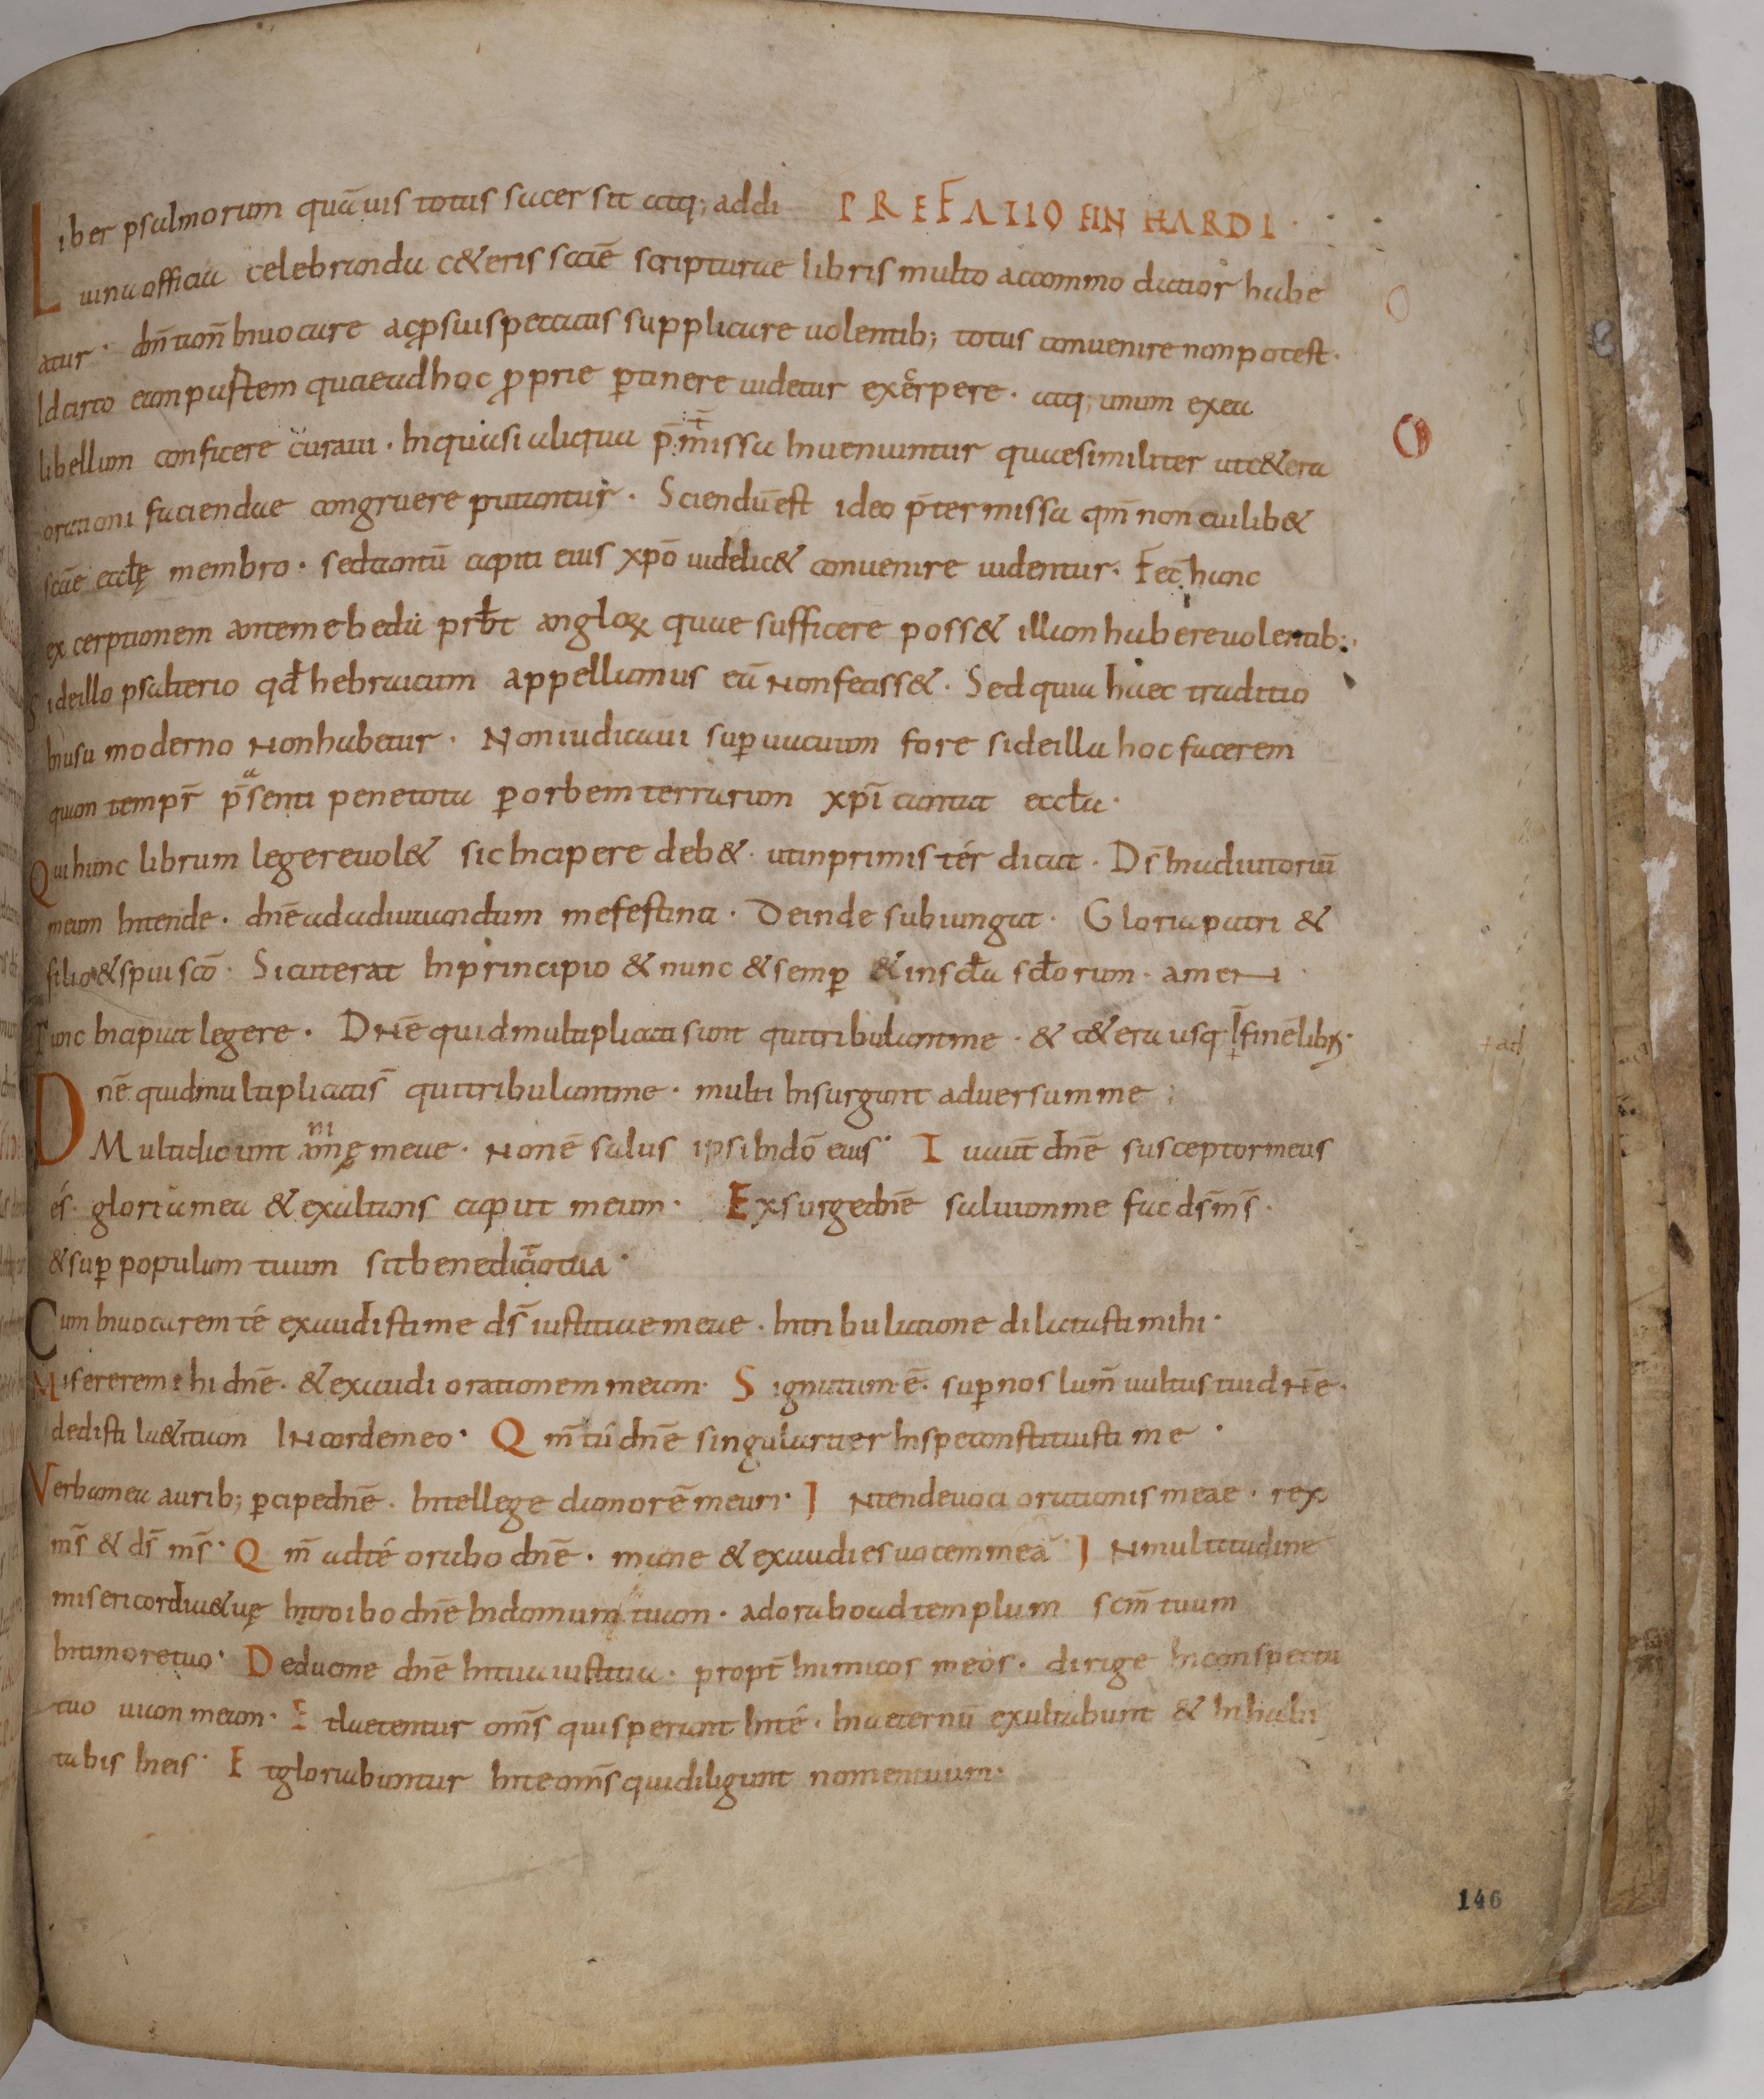 Liber psalmorum quāuis totus sacer sit atq; addi PREFATIO EINHARDI ·
uina officia celebranda c&eris scāe scripturae libris multo accommodatior habe
atur · dn̄i tam̄ inuocare ac ꝓ suis peccatis supplicare uolentib; totus conuenire non potest ·
Idcirco eam partem quae ad hoc ꝓprie ꝑtinere uidetur excerpere · atq; unum ex ea
libellum conficere curaui · In quia si aliqua p̄t̄missa inueniuntur quae similiter ut c&era
orationi faciendae congruere putantur · Sciendū est ideo p̄termissa qm̄ non cuilib&
scāe eccłę membro · sed tantū capiti eius xp̄o uidelic& conuenire uidentur · Fec̄ hanc
excerptionem ante me beda prb̄t angloꝝ quae sufficere poss& illam habere uolentib; ·
Si de illo psalterio qđ hebraicum appellamus eā non feciss& · Sed quia haec traditio
in usu moderno non habetur · Non iudicaui suꝑuacuum fore si de illa hoc facerem
quam tempr̄ p̄senti pene tota ꝑ orbem terrarum xp̄i cantat eccła ·
Qui hunc librum legere uol& sic incipere deb& · ut inprimis tér dicat · Ds̄ in adiutoriū
meum intende · dn̄e ad adiuuandum me festina · Deinde subiungat · Gloria patri &
filio & spui scō · Sicut erat in principio & nunc & semꝑ & in scła scłorum · amen ·
Tunc incipiat legere · Dn̄e quid multiplicati sunt qui tribulant me · & c&era usq; finē libri ·
+ ad
Dn̄e quid multiplicati s̄ qui tribulant me · multi insurgunt aduersum me ;
Multi dicunt animę meae · Non ē salus ipsi in dō eius · Tu aut̄ dn̄e susceptor meus
és · gloria mea & exaltans caput meum · Exsurge dn̄e saluum me fac ds̄ ms̄ ·
& suꝑ populum tuum sit benedictio tua ·
Cum inuocarem té exaudisti me ds̄ iustitiae meae · in tribulatione dilatasti mihi ·
Miserere mihi dn̄e · & exaudi orationem meam · Signatum ē · suꝑ nos lum̄ uultus tui dn̄e ·
dedisti la&itiam in corde meo · Qm̄ tū dn̄e singulariter in spe constituisti me ·
Verba mea aurib; ꝑcipe dn̄e · intellege clamorē meum · Intende uoci orationis meae · rex
ms̄ & ds̄ ms̄ · Qm̄ ad té orabo dn̄e · mane & exaudies uocem meā · In multitudine
misericordiae tuę introibo dn̄e in domum tuam · adorabo ad templum scm̄ tuum
in timore tuo · Deduc me dn̄e in tua iustitia · propt̄ inimicos meos · dirige in conspectu
tuo uiam meam · Et laetentur oms̄ qui sperant in té · in aeternū exultabunt & inhabi
tabis in eis · Et gloriabuntur in te oms̄ qui diligunt nomen tuum ·
146